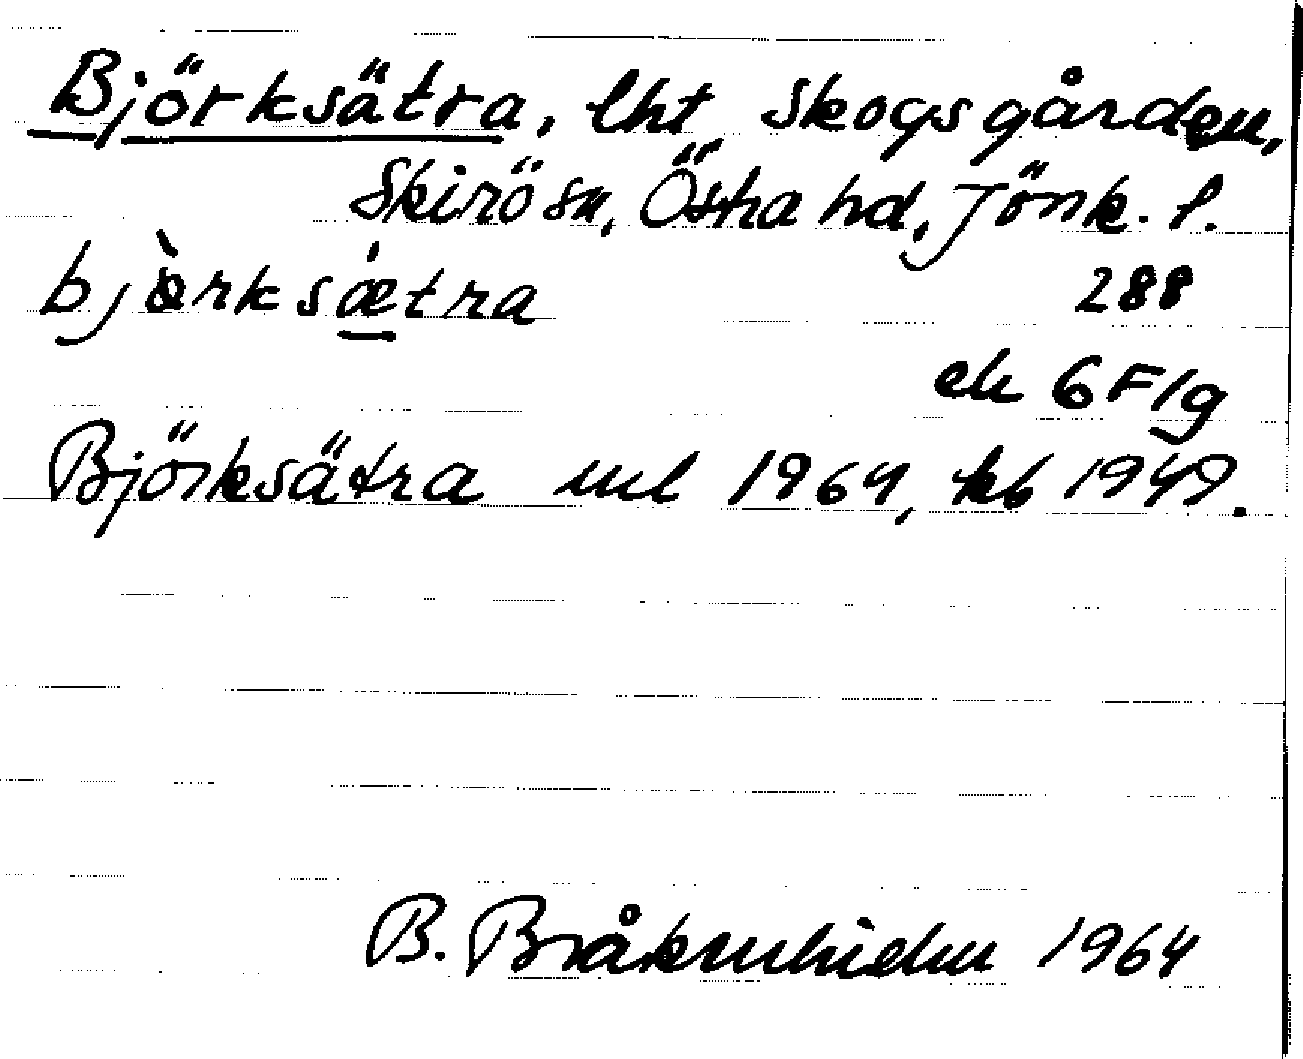 Björksätra, lht Skogsgården,
Skirö sn, Östra hd, Jönk. l.
bjørksætra 288
ek 6F1g
Björksätra ml 1964, kb 1949.
B. 1964